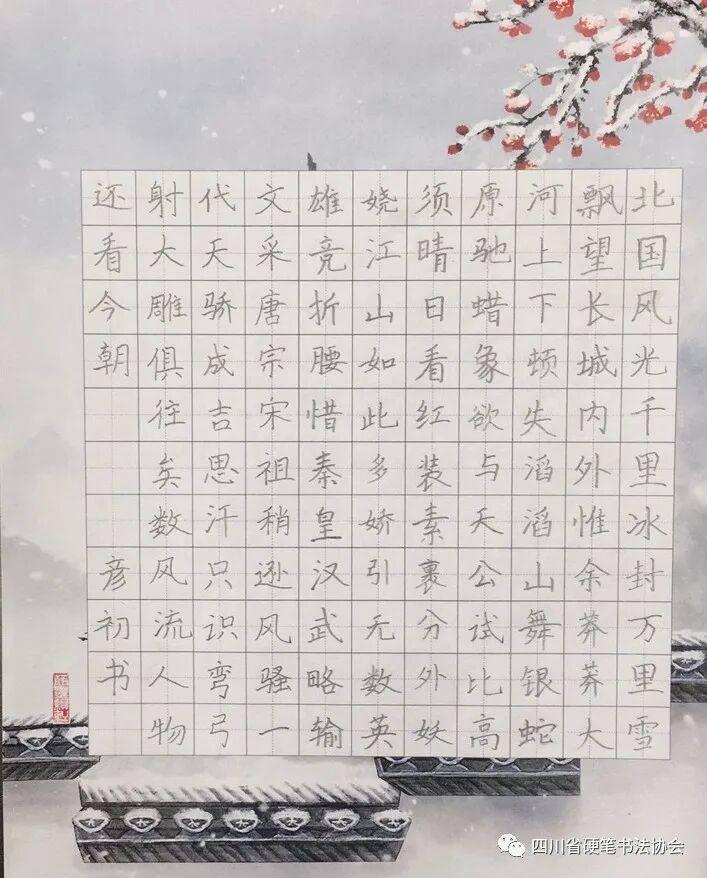 北国风光千里冰封万里雪
飘望长城内外惟余莽莽大
河上下顿失滔滔山舞银蛇
原驰蜡象欲与天公试比高
须晴日看红装素裹分外妖
娆江山如此多娇引无数英
雄竞折腰惜秦皇汉武略输
文采唐宗宋祖稍逊风骚一
代天骄成吉思汗只识弯弓
射大雕俱往矣数风流人物
还看今朝 彦初书
四川省硬笔书法协会